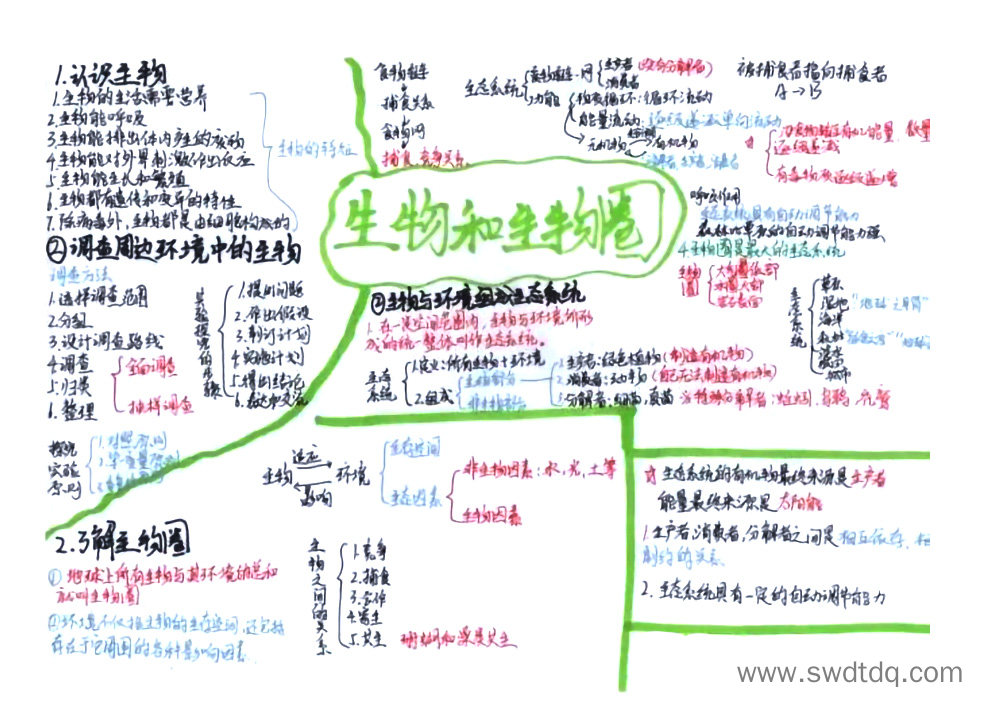 生物和生物圈
1.认识生物
1.生物的生活需要营养
2.生物能呼吸
3.生物能排出体内产生的废物
4.生物能对外界刺激作出反应
5.生物能生长和繁殖
6.生物都有遗传和变异的特性
7.除病毒外,生物都是由细胞构成的
生物的特征
②调查周边环境中的生物
调查方法
1.选择调查范围
2.分组
3.设计调查路线
4.调查
全面调查
抽样调查
5.归类
6.整理
实验探究的步骤
1.提出问题
2.作出假设
3.制订计划
4.实施计划
5.得出结论
6.表达和交流
探究实验原则
1.对照原则
2.了解生物圈
①地球上所有生物与其环境的总和
就叫生物圈
②环境不仅指生物的生存空间,还包括
存在于它周围的各种影响因素
生物
适应
影响
环境
生存空间
生态因素
非生物因素:水,光,土等
生物因素
生物之间的关系
1.竞争
2.捕食
3.合作
4.寄生
5.共生
珊瑚和藻类共生
食物链
捕食关系
食物网
捕食,竞争关系。
生态系统
食物链·网
生产者
消费者
功能
物质循环:循环流动
能量流动:逐级递减单向流动
无机物
有机物
被捕食者指向捕食者
A→B
逐级递减
有毒物质逐级递增
呼吸作用
生态系统具有自动调节能力
森林比草原的自动调节能力强
4.生物圈是最大的生态系统
生物圈
大气圈底部
水圈大部
岩石表面
生态系统
草原
湿地
海洋
森林
城市
③生物与环境组成生态系统
1.在一定空间范围内,生物与环境所形
成的统一整体叫作生态系统。
生态系统
1.定义:所有生物+环境
2.组成
生物部分
非生物部分
1.生产者:绿色植物(制造有机物)
2.消费者:动物(自己无法制造有机物)
3.分解者:细菌,真菌
生态系统的有机物最终来源是生产者
能量最终来源是太阳能
1.生产者,消费者,分解者之间是相互依存,相互
制约的关系
2.生态系统具有一定的自动调节能力
www.swdtdq.com